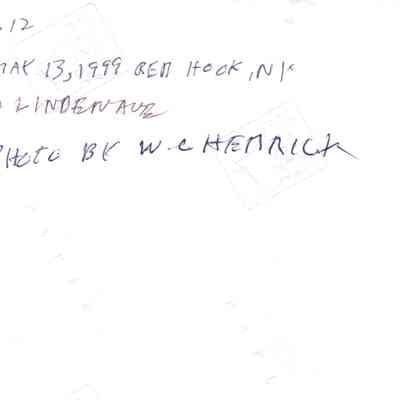 .12
MAY 13, 1999 RED HOOK, NY
LINDEN AVE
PHOTO BY W.C HEMRICK